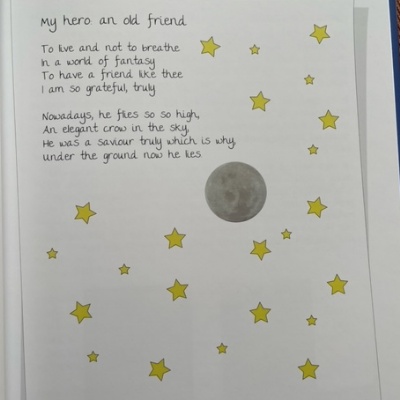 My hero: an old friend
To live and not to breathe
In a world of fantasy
To have a friend like thee
I am so grateful, truly
Nowadays, he flies so so high,
An elegant crow in the sky,
He was a saviour truly which is why,
under the ground now he lies